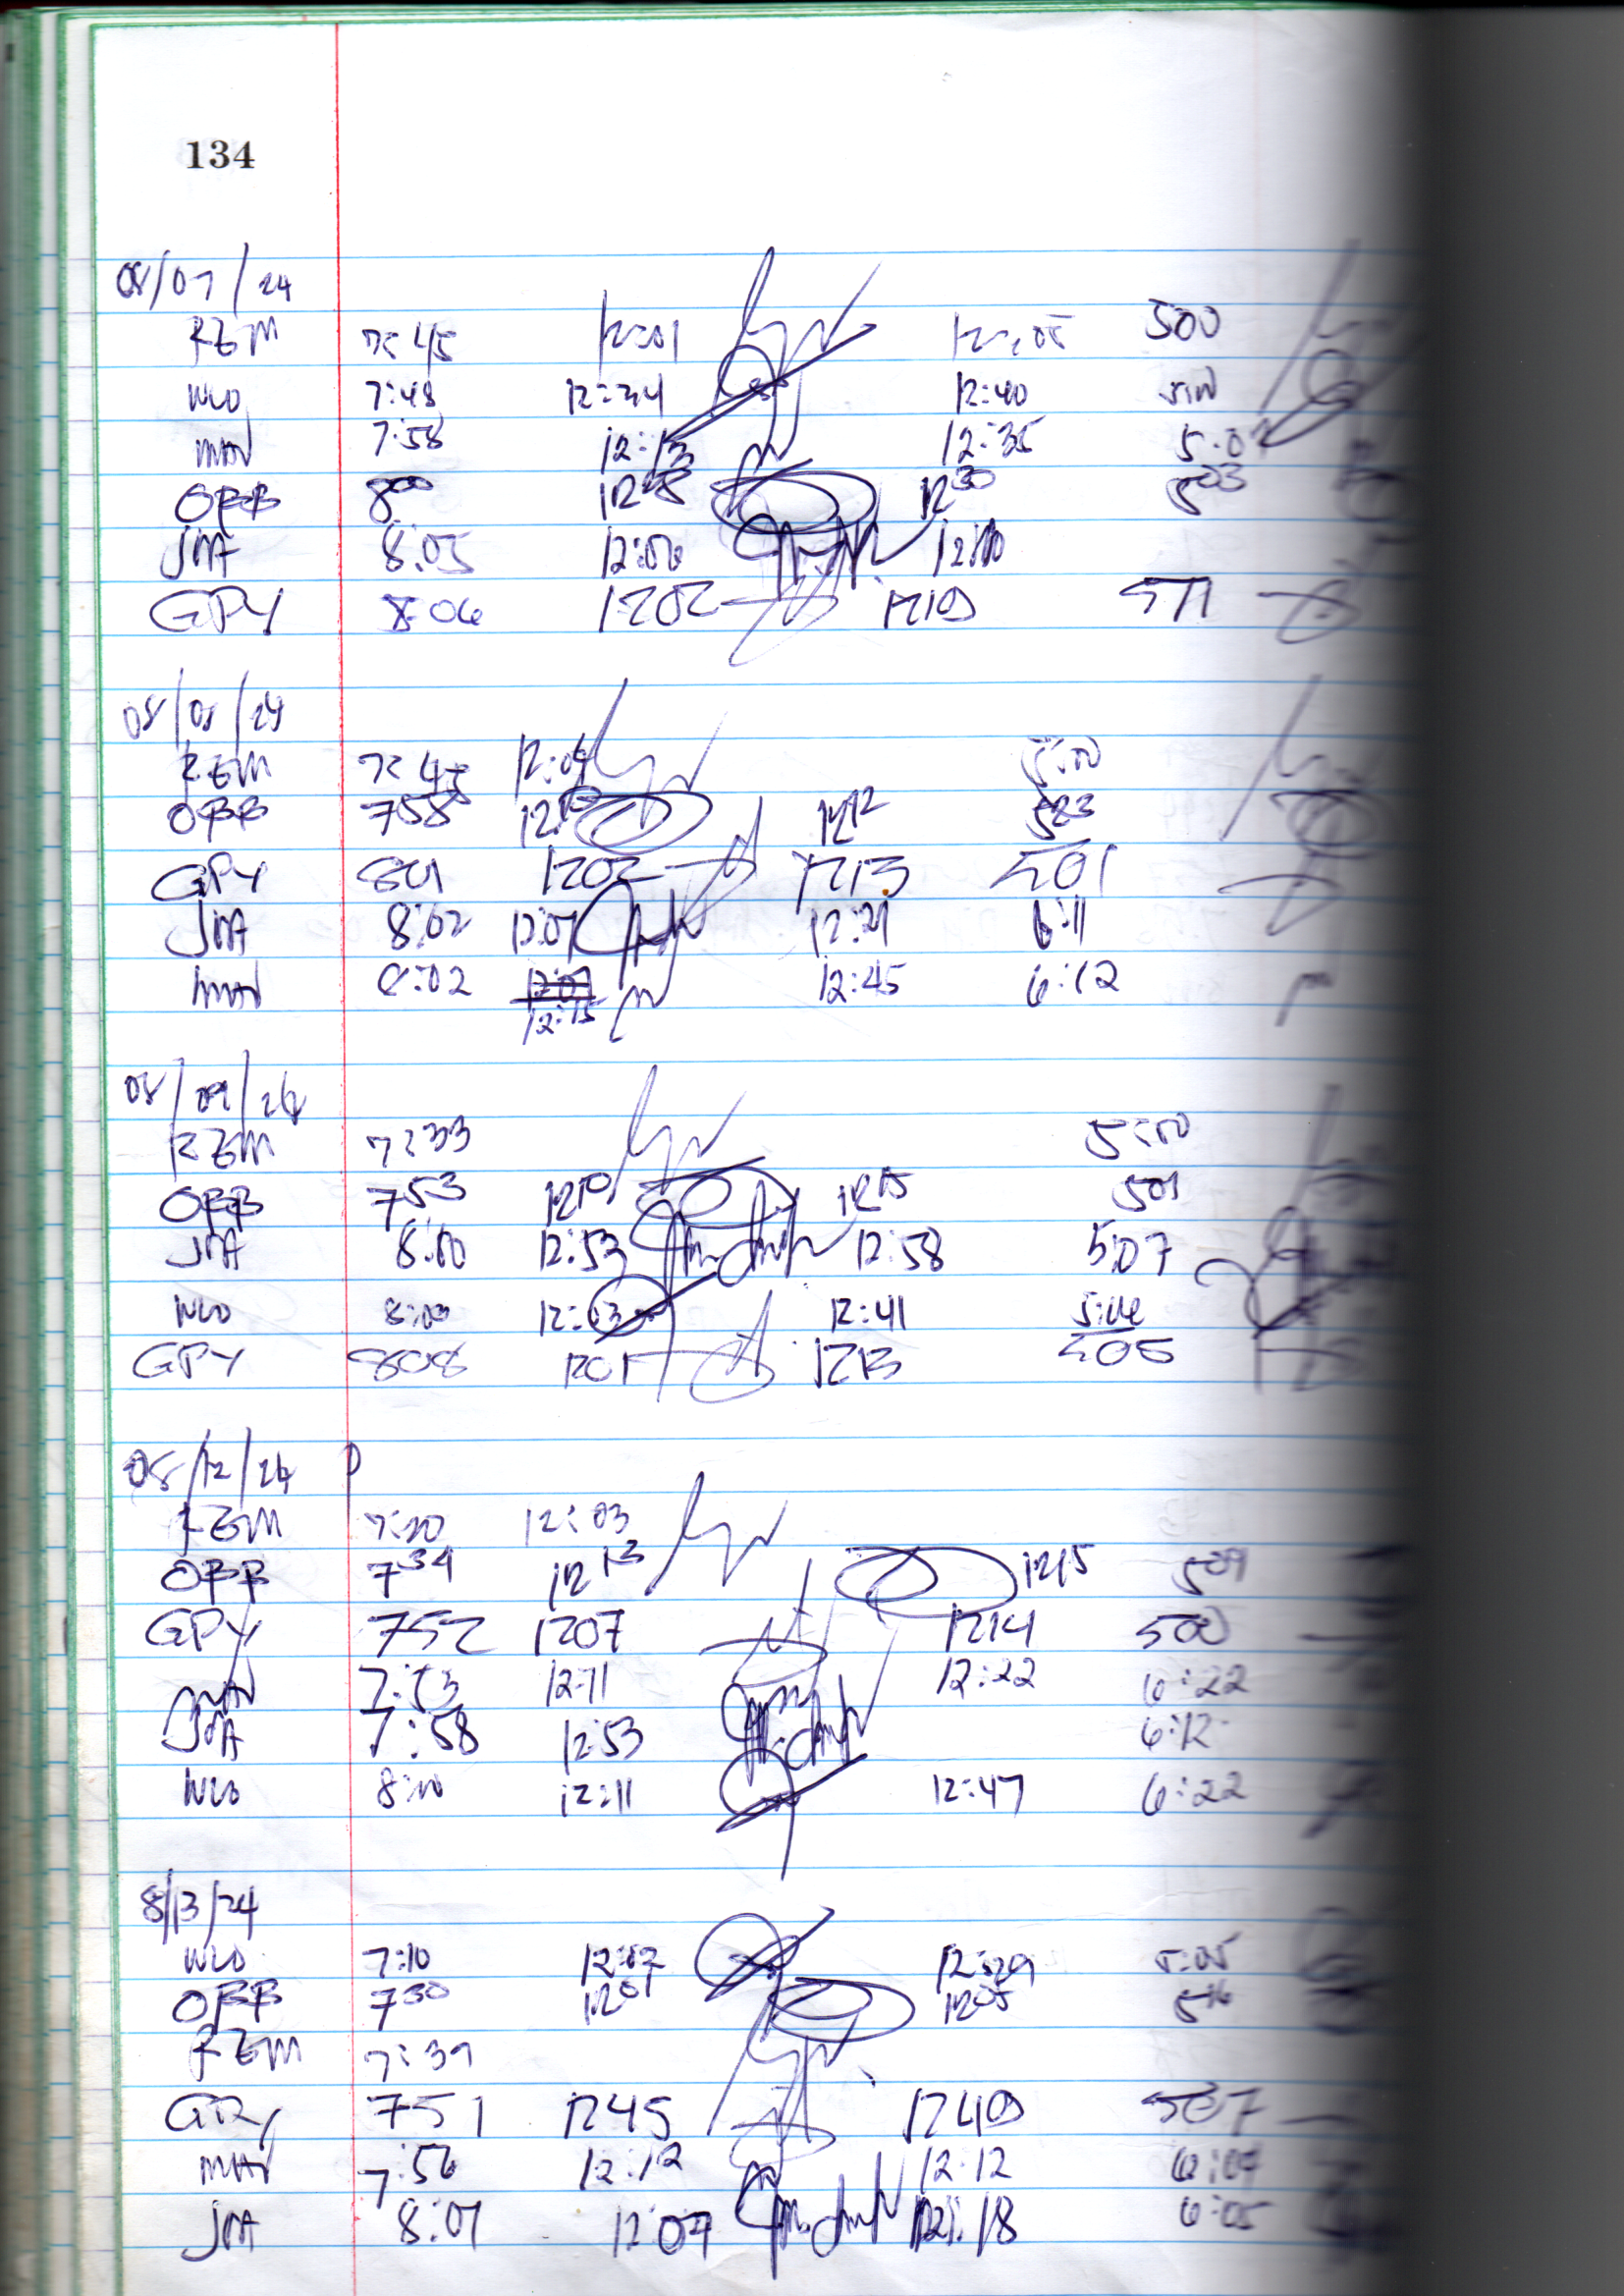 134
08/07/24
REM 7:45 12:01 12:05 500
WLO 7:48 12:34 12:40 5:00
MAV 7:58 12:13 12:35 5:0
OBB 800 12 12 30 5 03
JMA 8:05 12:06 12:10
GPY 8:06 1202 1219 511
08/08/24
REM 7:45 12:04 5:00
OBB 758 12 10 12 12 523
GPY 801 1202 1213 501
JMA 8:02 12:07 12:21 6:11
MAV 8:02 12:07 12:45 6:12
12:15
08/09/24
REM 7:33 5:00
OBB 7 53 12 10 12 15 501
JMA 8:00 12:53 12:58 5:07
WLO 8:00 12:03 12:41 5:04
GPY 808 1201 1213 505
08/12/24
REM 7:20 12:03
OBB 7 34 12 13 1215 509
GPY 752 1207 1214 500
MAV 7:53 12:11 12:22 6:22
JMA 7:58 12:53 6:12
WLO 8:00 12:11 12:47 6:22
8/13/24
WLO 7:10 12:02 12:29 5:05
OBB 7 30 12 01 12 05 5 16
REM 7:39
GPY 751 1245 1249 507
MAV 7:56 12:12 12:12 6:07
JMA 8:07 12:07 12:18 6:05